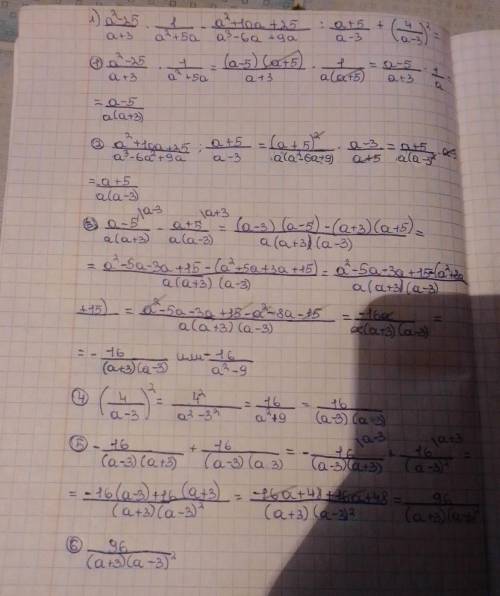 1) (a²-25)/(a+3) · 1/(a²+5a) - (a²+10a+25)/(a³-6a+9a) : (a+5)/(a-3) + (4/(a-3))² =
① (a²-25)/(a+3) · 1/(a²+5a) = ((a-5)(a+5))/(a+3) · 1/(a(a+5)) = (a-5)/(a+3) · 1/a =
= (a-5)/(a(a+3))
② (a²+10a+25)/(a³-6a²+9a) : (a+5)/(a-3) = (a+5)²/(a(a²6a+9)) · (a-3)/(a+5) = (a+5)/(a(a-3)²)
= (a+5)/(a(a-3))
③ (a-5\a-3)/(a(a+3)) - (a+5\a+3)/(a(a-3)) = ((a-3)(a-5)-(a+3)(a+5))/(a(a+3)(a-3)) =
= (a²-5a-3a+15-(a²+5a+3a+15))/(a(a+3)(a-3)) = (a²-5a-3a+15-(a²+8a/(a(a+3)(a-3))
+15) = (a²-5a-3a+15-a²-8a-15)/(a(a+3)(a-3)) = (-16a)/(a(a+3)(a-3)) =
= - 16/((a+3)(a-3)) или - 16/(a²-9)
④ (4/(a-3))² = 4²/(a²-3²) = 16/(a²+9) = 16/((a-3)(a+3))
⑤ - 16/((a-3)(a+3)) + 16/((a-3)(a-3)) = - 16\a-3/((a-3)(a+3)) + 16\a+3/((a-3)²) =
= (-16(a-3)+16(a+3))/((a+3)(a-3)²) = (-16a+48+16a+48)/((a+3)(a-3)²) = 96/((a+3)(a-3)²)
⑥ 96/((a+3)(a-3)²)